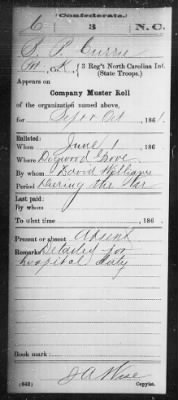 Confederate.
C 3 N.C.
Currie
Co. K, 3 Reg't North Carolina Inf.
(State Troops.)
Appears on
Company Muster Roll
of the organization named above,
for Sept & Oct, 1861.
Enlisted:
When June 1, 186 .
Where Dogwood Grove
By whom David Williams
Period During the War
Last paid:
By whom
To what time , 186 .
Present or absent Absent
Remarks: Detailed for
hospital duty
Book mark:
(642) J A Wise
Copyist.